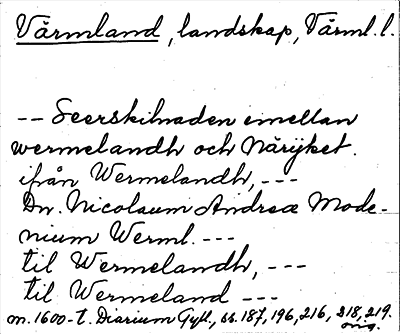 Värmland, landskap, Värml. l.
-- Seerskilnaden emellan
wermelandh och Närijket.
ifrån Wermelandh, ---
Dn. Nicolaum Andreæ Mode-
nium Werml. ---
til Wermelandh, ---
til Wermeland ---
m. 1600-t. Diarium Gyll., ss. 187, 196, 216, 218, 219.
orig.